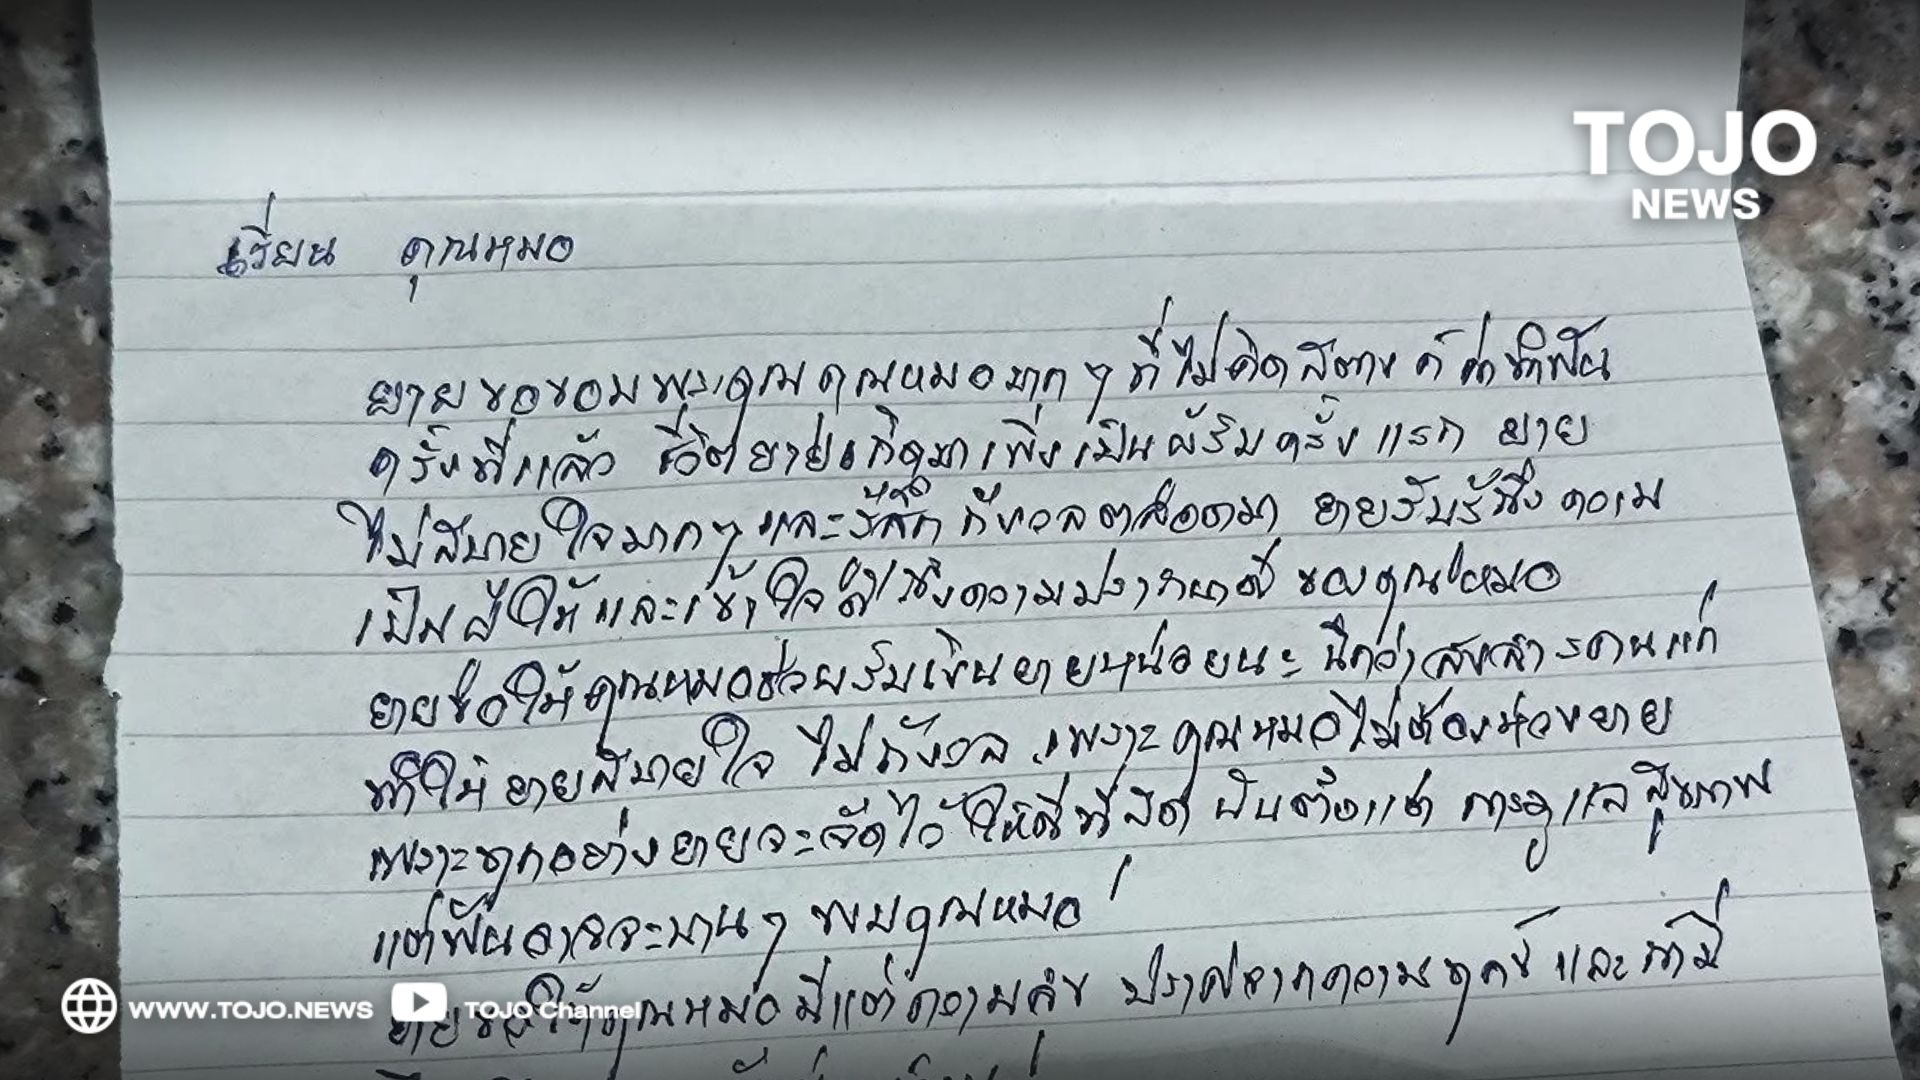 TOJO
NEWS
เรียน คุณหมอ
ยายขอขอบพระคุณคุณหมอมากๆที่ไม่คิดสตางค์ค่าทำฟัน
ครั้งที่แล้ว ชีวิตยายเกิดมาเพิ่งเป็นผู้รับครั้งแรก ยาย
ไม่สบายใจมากๆและรู้สึกกังวลตลอดมา ยายรับรู้ถึงความ
เป็นผู้ให้และเข้าใจดีถึงความปรารถนาดีของคุณหมอ
ยายขอให้คุณหมอช่วยรับเงินยายหน่อยนะ นึกว่าสงสารคนแก่
ทำให้ยายสบายใจ ไม่กังวล เพราะคุณหมอไม่ต้องห่วงยาย
เพราะทุกอย่างยายจะจัดไว้ให้ดีที่สุด นับตั้งแต่ การดูแลสุขภาพ
แต่ฟันอาจจะนานๆ พบคุณหมอ
ยายขอให้คุณหมอมีแต่ความสุข ปราศจากความทุกข์และถ้ามี
WWW.TOJO.NEWS TOJO Channel